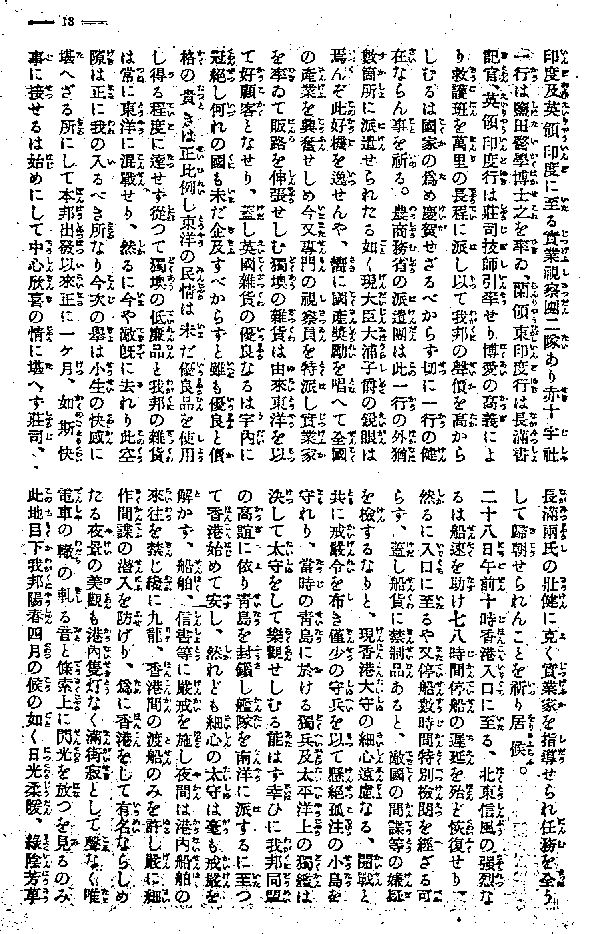 18
印度及英領印度に至る實業視察團二隊あり赤十字社
一行は鹽田醫學博士之を率ゐ、蘭領東印度行は長滿書
記官、英領印度行は莊司技師引率せり博愛の高義によ
り救護班を萬里の長程に派し以て我邦の聲價を高から
しむるは國家の爲め慶賀せざるべからす切に一行の健
在ならん事を祈る。農商務省の派遣團は此一行の外猶
數箇所に派遣せられたる如く現大臣大浦子爵の鋭眼は
焉んぞ此好機を逸せんや、嚮に國產奬勵を唱へて全國
の產業を興奮せしめ今又專門の視察員を特派し實業家
を率ゐて販路を伸張せしむ獨墺の雜貨は由來東洋を以
て好顧客となせり、蓋し英國雜貨の優良なるは宇內に
冠絕し何れの國も未だ企及すべからすと雖も優良と價
格の貴きは正比例し東洋の民情は未だ優良品を使用
し得る程度に達せず從つて獨墺の低廉品と我邦の雜貨
は常に東洋に混戰せり、然るに今や敵旣に去れり此空
隙は正に我の入るべき所なり今次の擧は小生の快感に
堪へざる所にして本邦出發以來正に一ケ月、如斯快
事に接せるは始めにして中心欣喜の情に堪へす莊司、
長滿兩氏の壯健に克く實業家を指導せられ任務を全う
して歸朝せられんことを祈り居候。
二十八日午前十時香港入口に至る、北東信風の強烈な
るは船速を助け七八時間停船の遲延を殆ど恢復せり
然るに入口に至るや又停船數時間特別檢閱を經ざる可
らす、蓋し船貨に禁制品あると、敵國の間諜等の嫌疑
を檢するなりと、現香港大守の細心遠慮なる、開戰と
共に戒嚴令を布き僅少の守兵を以て懸絕孤注の小島を
守れり、當時の青島に於ける獨兵及太平洋上の獨艦は
決して太守をして樂觀せしむる能はす幸ひに我邦同盟
の高誼に依り青島を封鎖し艦隊を南洋に派するに至つ
て香港始めて安し、然れども細心の太守は毫も戒嚴を
解かす、船舶、信書等に嚴戒を施し夜間は港內船舶の
來往を禁じ綫に九龍、香港間の渡船のみを許し嚴に細
作間諜の潛入を防げり、爲に香港をして有名ならしめ
たる夜景の美觀も港內隻灯なく滿街寂として聲なく唯
電車の轍の軋る音と條索上に閃光を放つを見るのみ
此地目下我邦陽春四月の候の如く日光柔暖、綠陰芳草